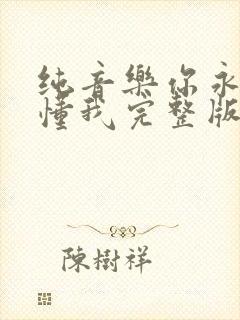 纯音樂你永
懂我完整版
陳樹祥